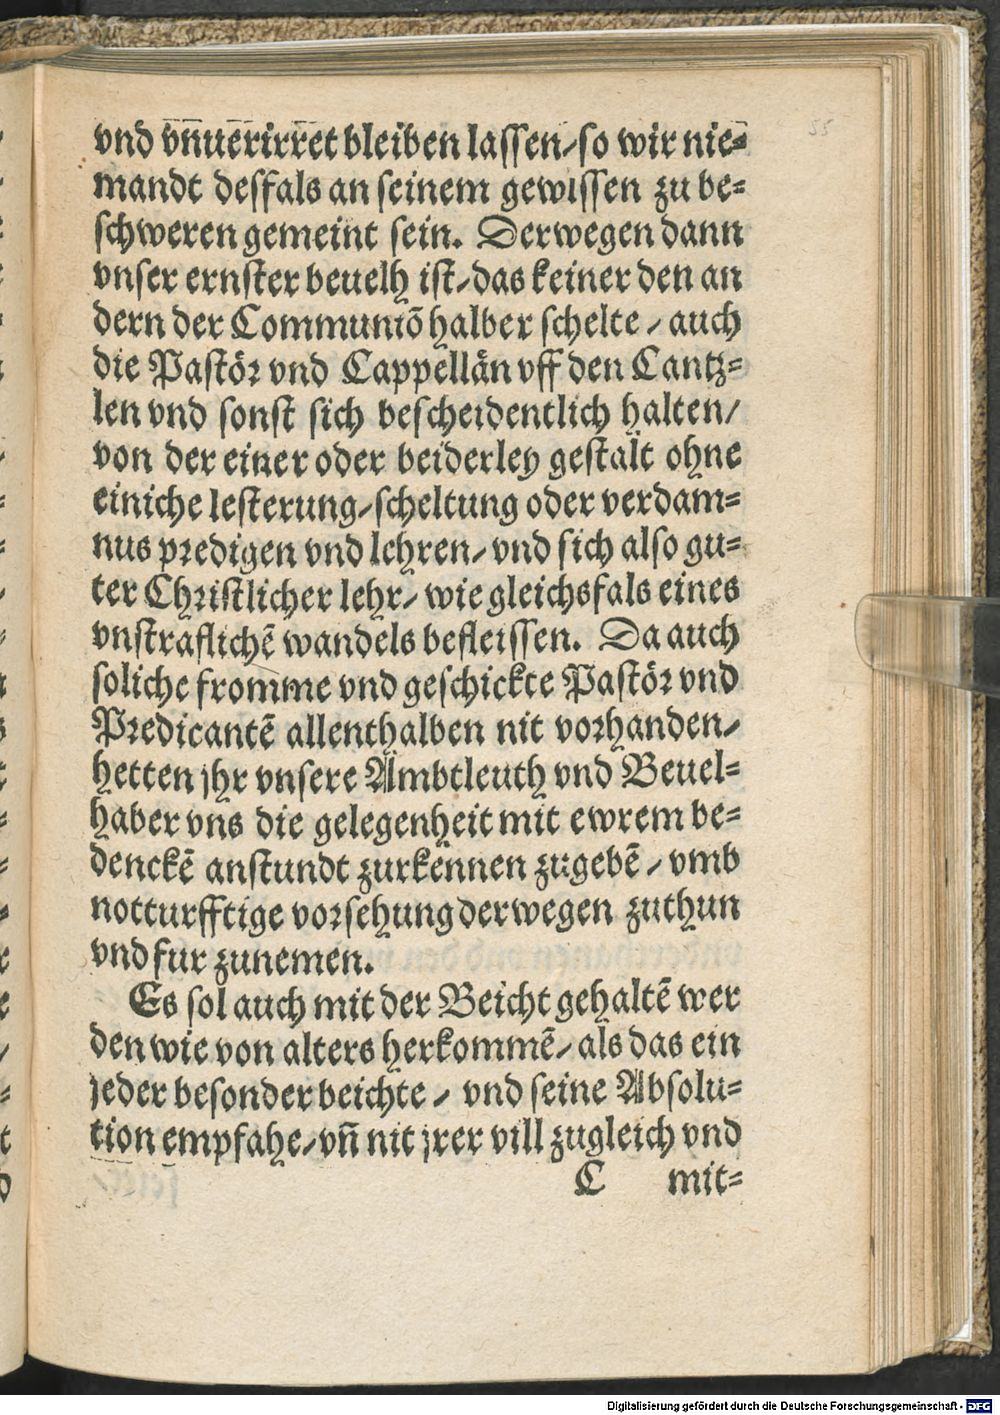 vnd vn̄uerirret bleiben lassen/so wir nie=
mandt desfals an seinem gewissen zu be=
schweren gemeint sein. Derwegen dann
vnser ernster beuelh ist/das keiner den an
dern der Communiō halber schelte/auch
die Pastör vnd Cappellän vff den Cantz=
len vnd sonst sich bescheidentlich halten/
von der einer oder beiderley gestalt ohne
einiche lesterung/scheltung oder verdam=
nus predigen vnd lehren/vnd sich also gu=
ter Christlicher lehr/wie gleichsfals eines
vnstraflichē wandels befleissen. Da auch
soliche fromme vnd geschickte Pastör vnd
Predicantē allenthalben nit vorhanden/
hetten jhr vnsere Ambtleuth vnd Beuel=
haber vns die gelegenheit mit ewrem be=
denckē anstundt zurkennen zugebē/vmb
notturfftige vorsehung derwegen zuthun
vnd fur zunemen.
Es sol auch mit der Beicht gehaltē wer
den wie von alters herkommē/als das ein
jeder besonder beichte/vnd seine Absolu=
tion empfahe/vn̄ nit jrer vill zugleich vnd
C mit=
55
Digitalisierung gefördert durch die Deutsche Forschungsgemeinschaft - DFG